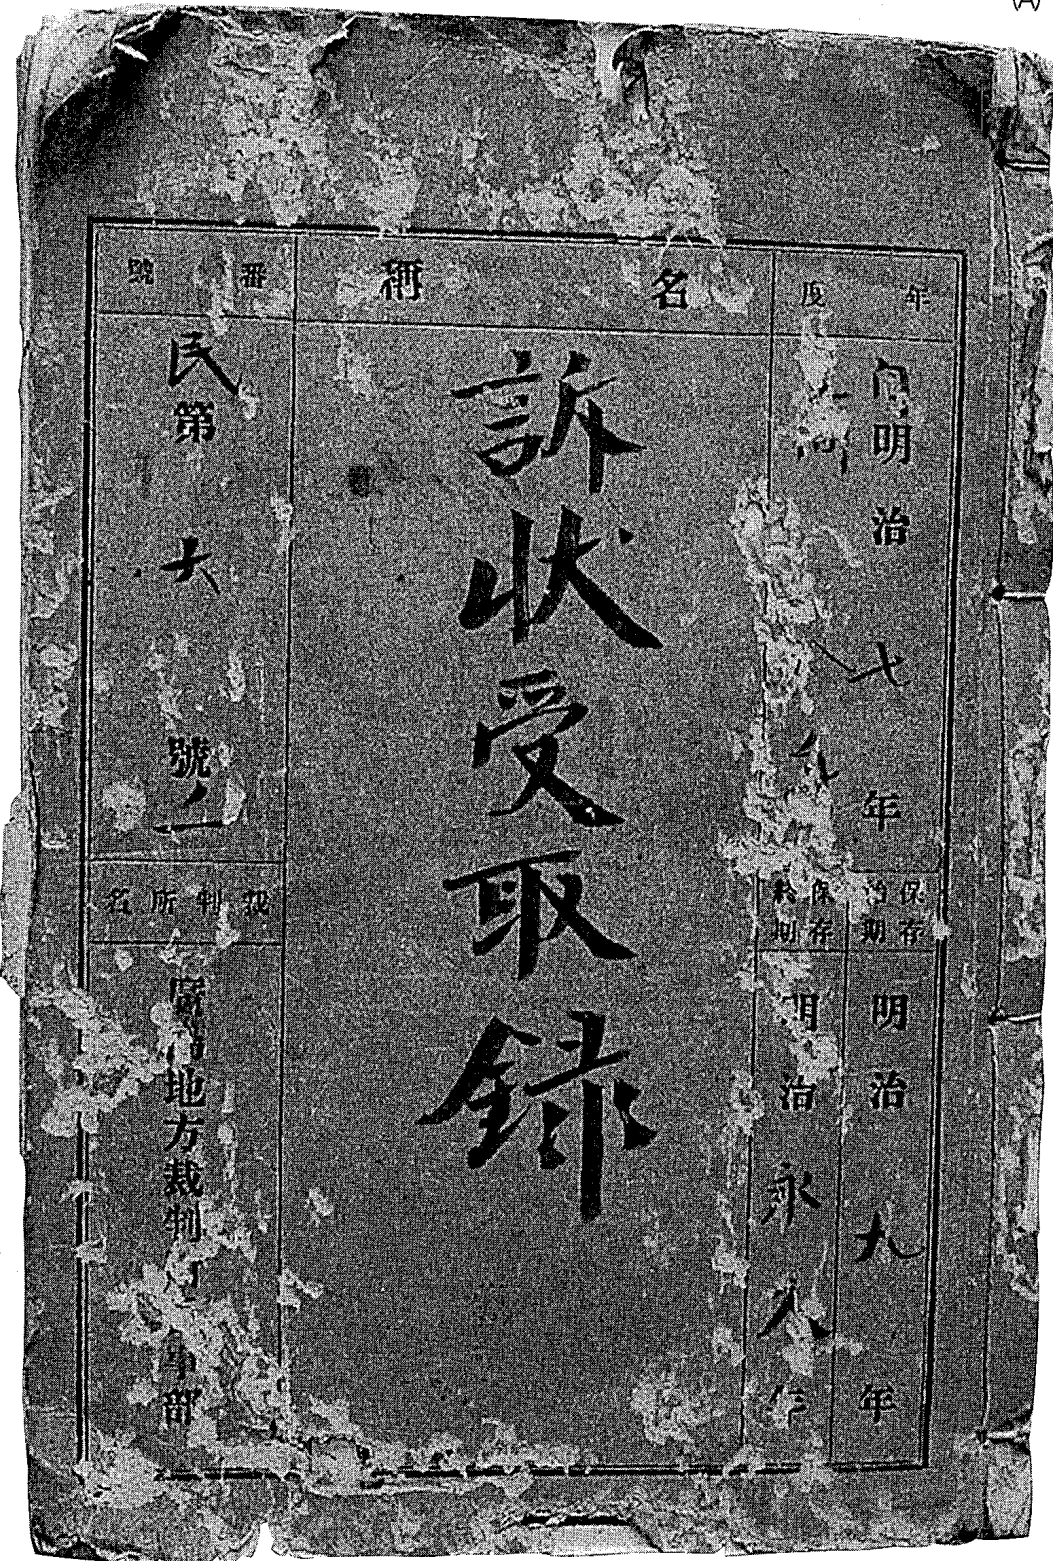 (A)
年度
自明治七年
至同八年
保存始期
明治九年
保存終期
明治永久年
名稱
訴状受取録
番號
民第六號ノ一
裁判所名
地方裁判所民事部